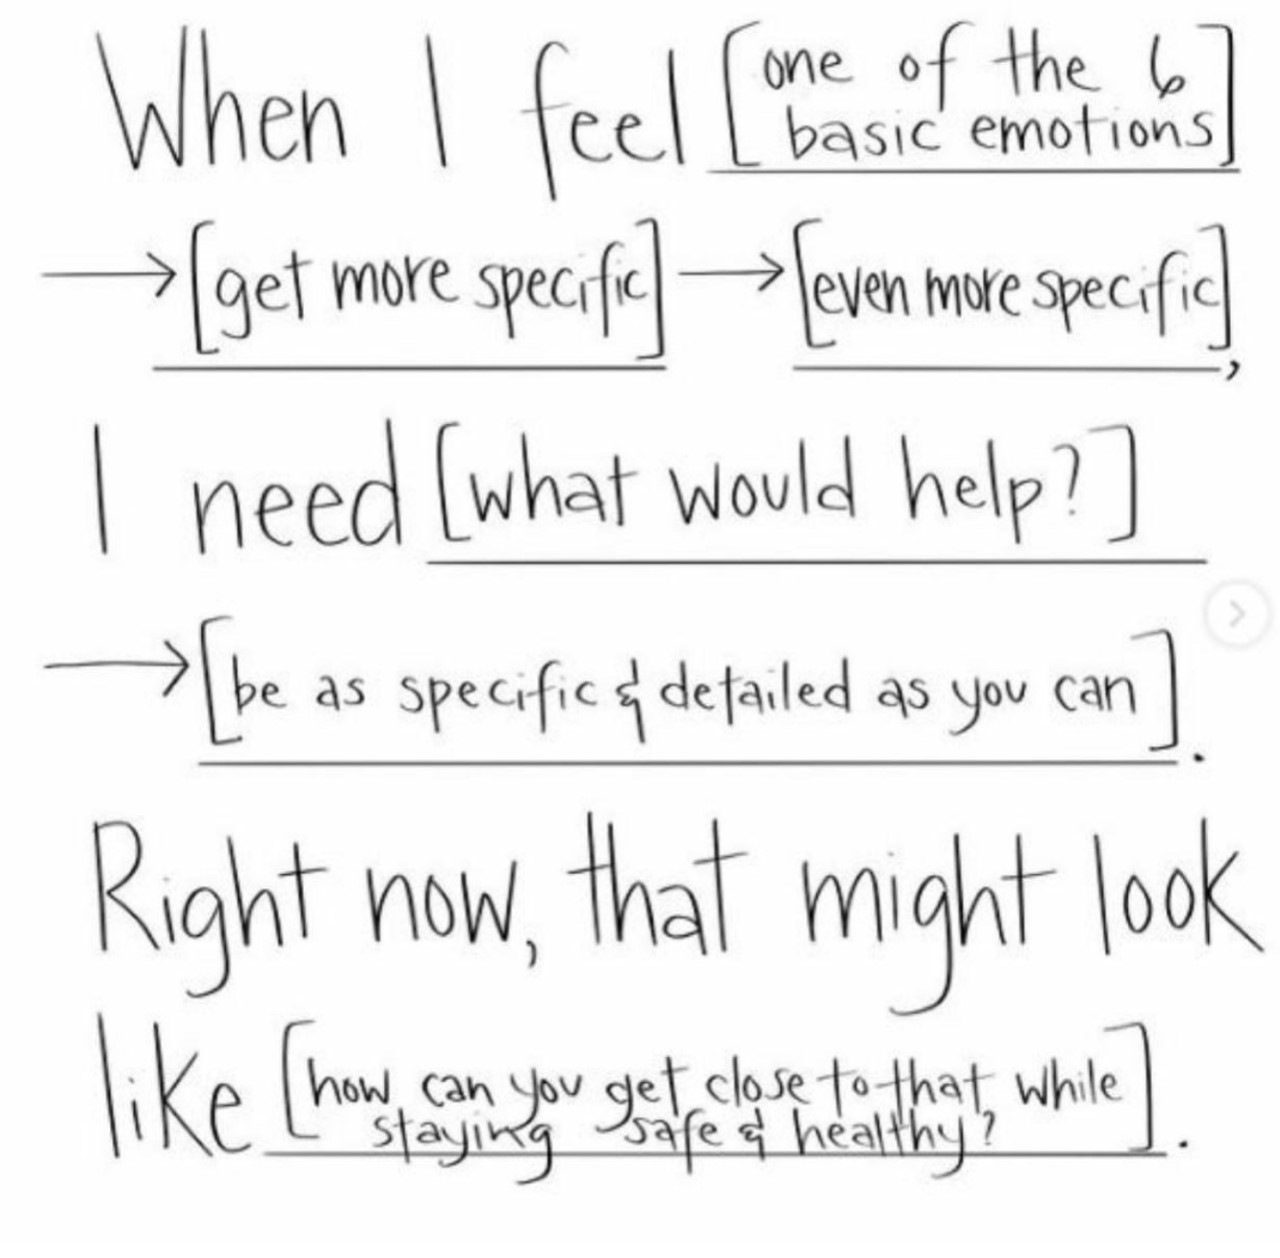 When I feel [one of the 6
basic emotions]
→[get more specific]→[even more specific],
I need [what would help?]
→[be as specific & detailed as you can].
Right now, that might look
like [how can you get close to that while
staying safe & healthy?].